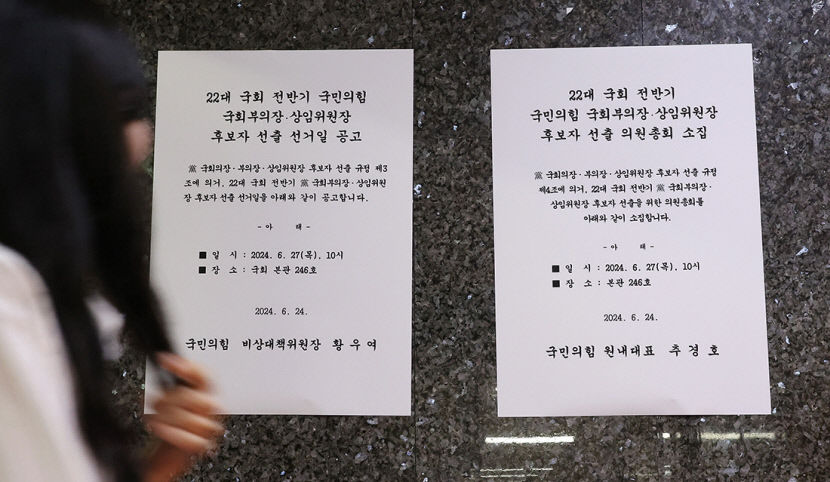 22대 국회 전반기 국민의힘
국회부의장·상임위원장
후보자 선출 선거일 공고
黨 국회의장·부의장·상임위원장 후보자 선출 규정 제3
조에 의거, 22대 국회 전반기 黨 국회부의장·상임위원
장 후보자 선출 선거일을 아래와 같이 공고합니다.
- 아 래 -
■ 일 시 : 2024. 6. 27(목), 10시
■ 장 소 : 국회 본관 246호
2024. 6. 24.
국민의힘 비상대책위원장 황우여
22대 국회 전반기
국민의힘 국회부의장·상임위원장
후보자 선출 의원총회 소집
黨 국회의장·부의장·상임위원장 후보자 선출 규정
제4조에 의거, 22대 국회 전반기 黨 국회부의장·
상임위원장 후보자 선출을 위한 의원총회를
아래와 같이 소집합니다.
- 아 래 -
■ 일 시 : 2024. 6. 27(목), 10시
■ 장 소 : 본관 246호
2024. 6. 24.
국민의힘 원내대표 추경호